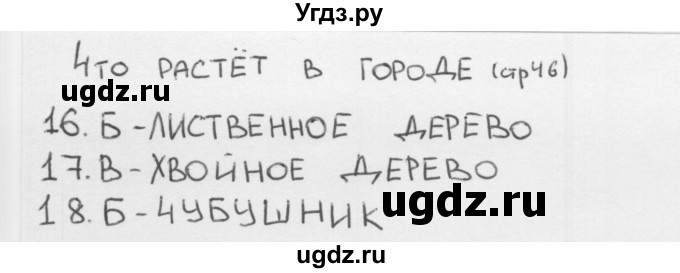 Угдз.ру
Что РАСТЁТ В ГОРОДЕ (стр46)
ugdz.ru
16. Б - ЛИСТВЕННОЕ ДЕРЕВО
17. В - ХВОЙНОЕ ДЕРЕВО
18. Б - ЧУБУШНИК
ugdz.ru
ugdz.ru
ugdz.ru